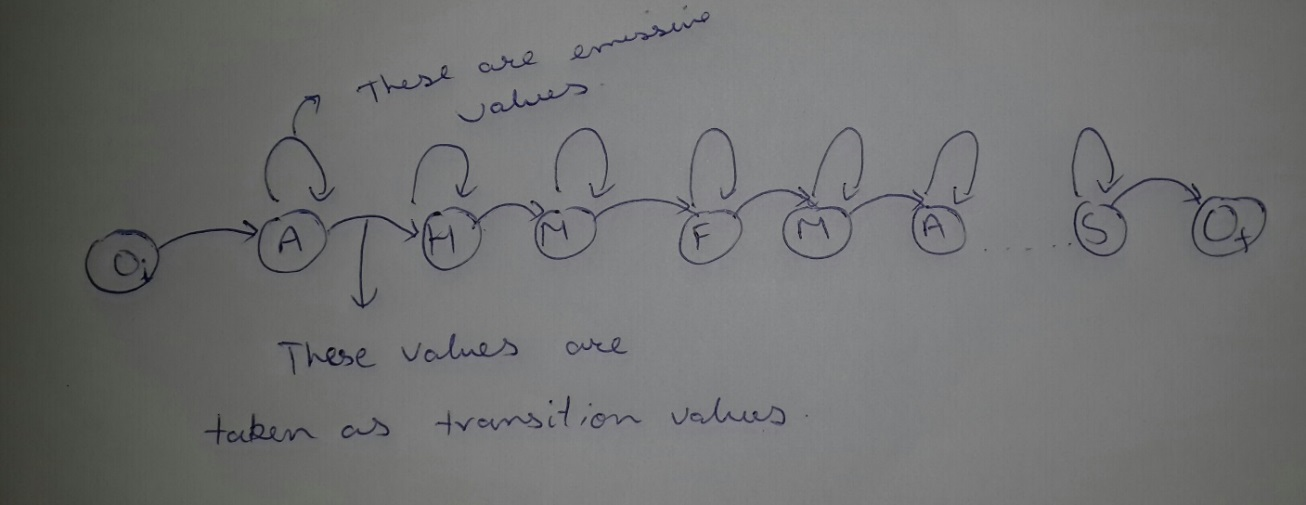 These are emissive
values.
Oi A H M F M A ...... S Of
These values are
taken as transition values.